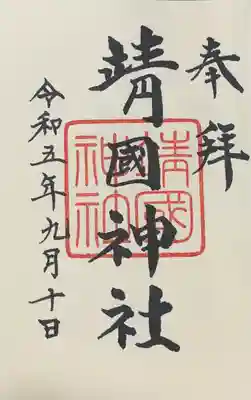 奉拜
靖國神社
靖國神社
令和五年九月十日